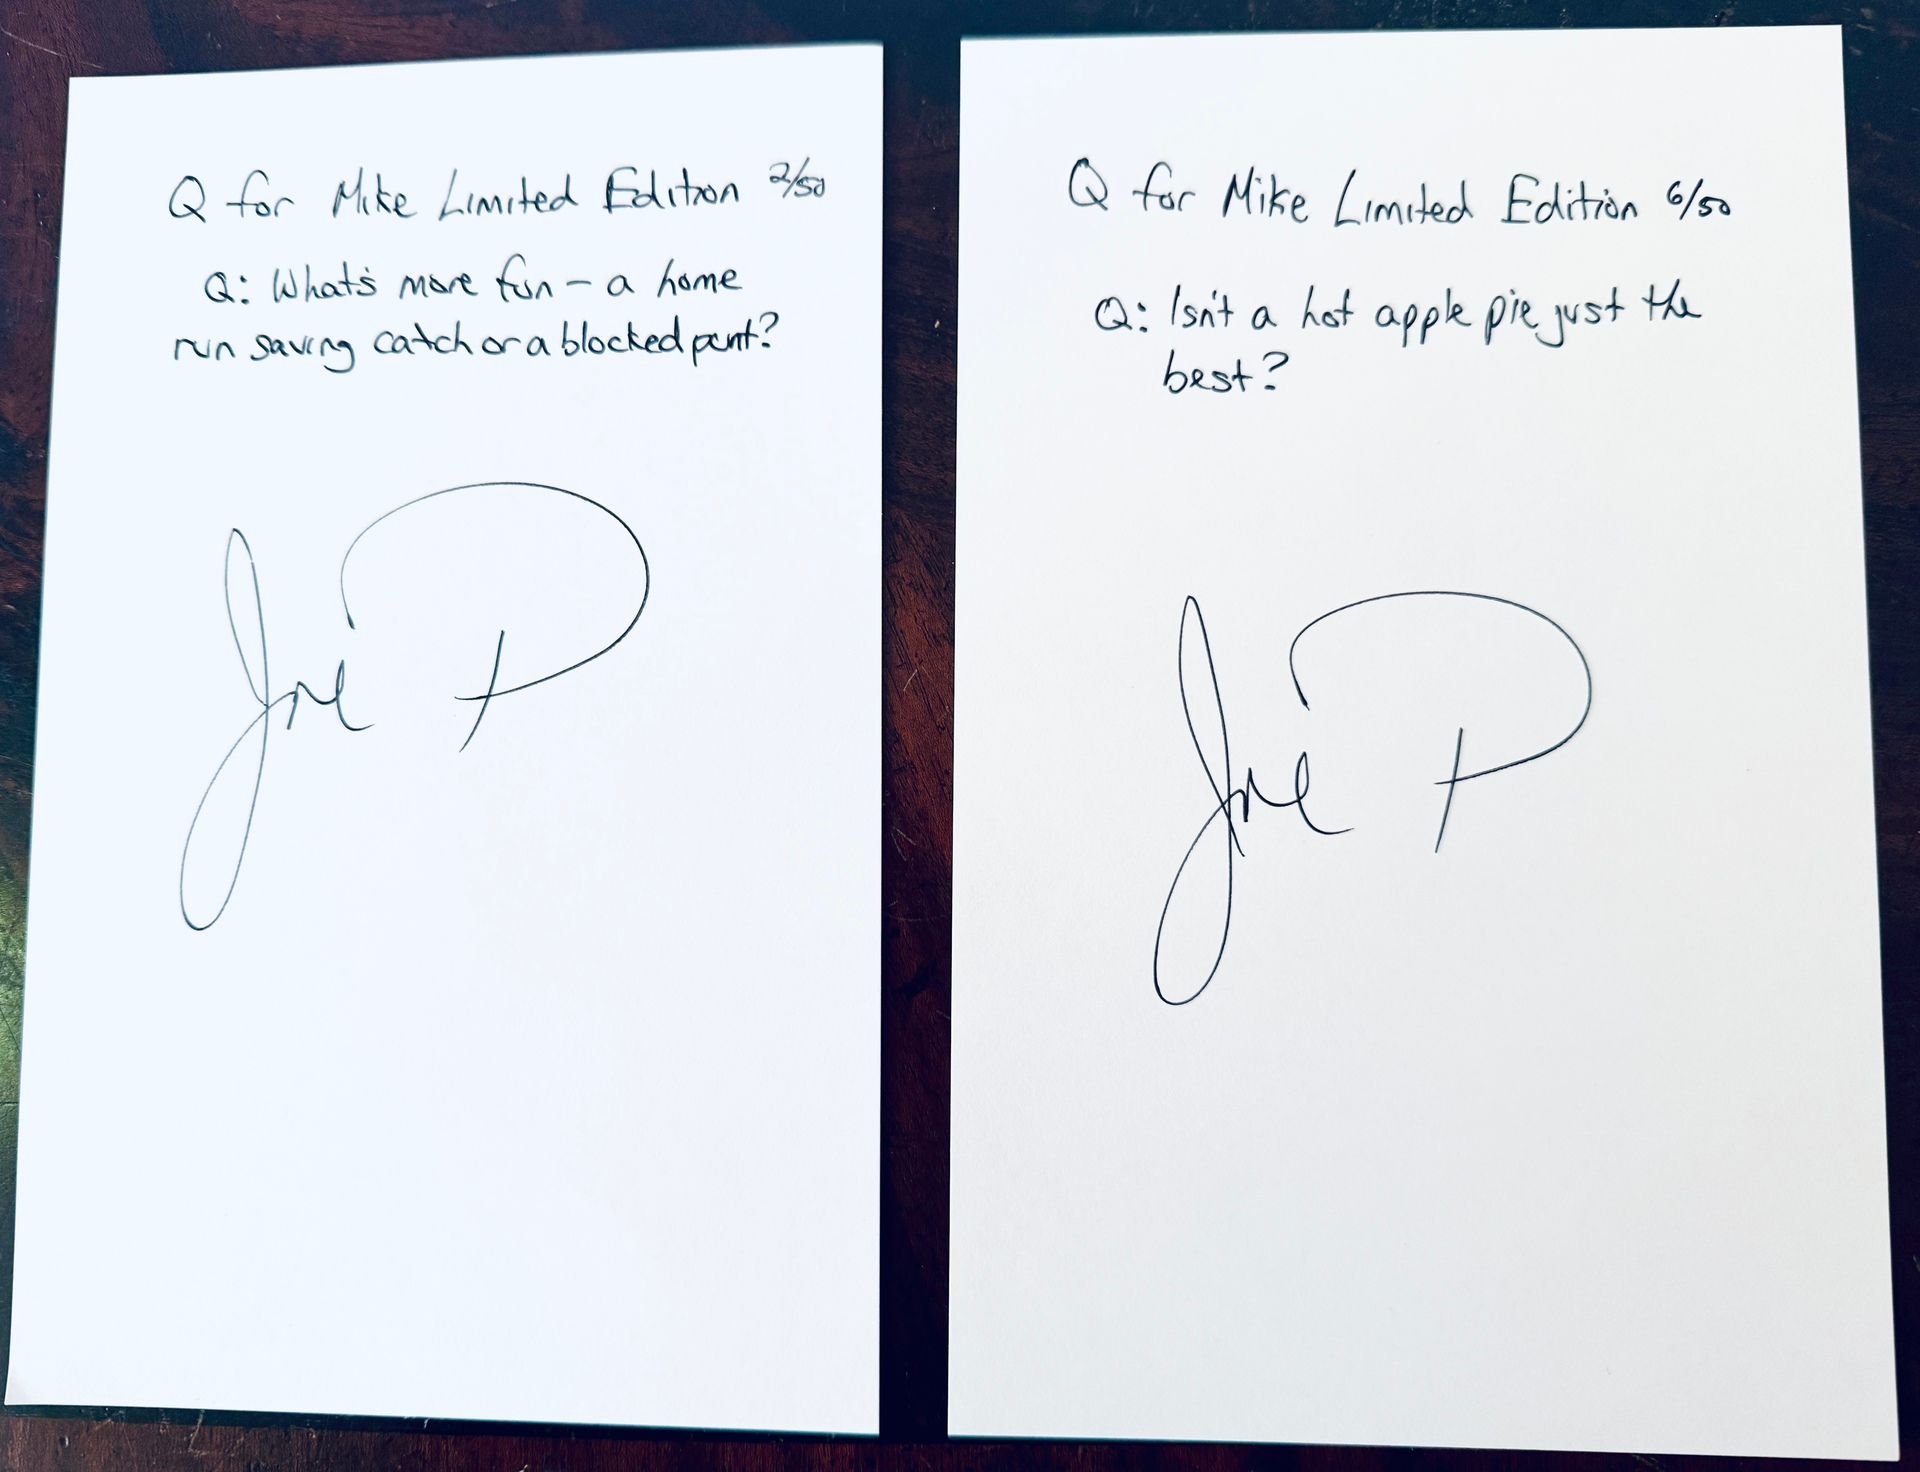 Q for Mike Limited Edition 2/50
Q: What's more fun - a home
run saving catch or a blocked punt?
Joe P
Q for Mike Limited Edition 6/50
Q: Isn't a hot apple pie just the
best?
Joe P